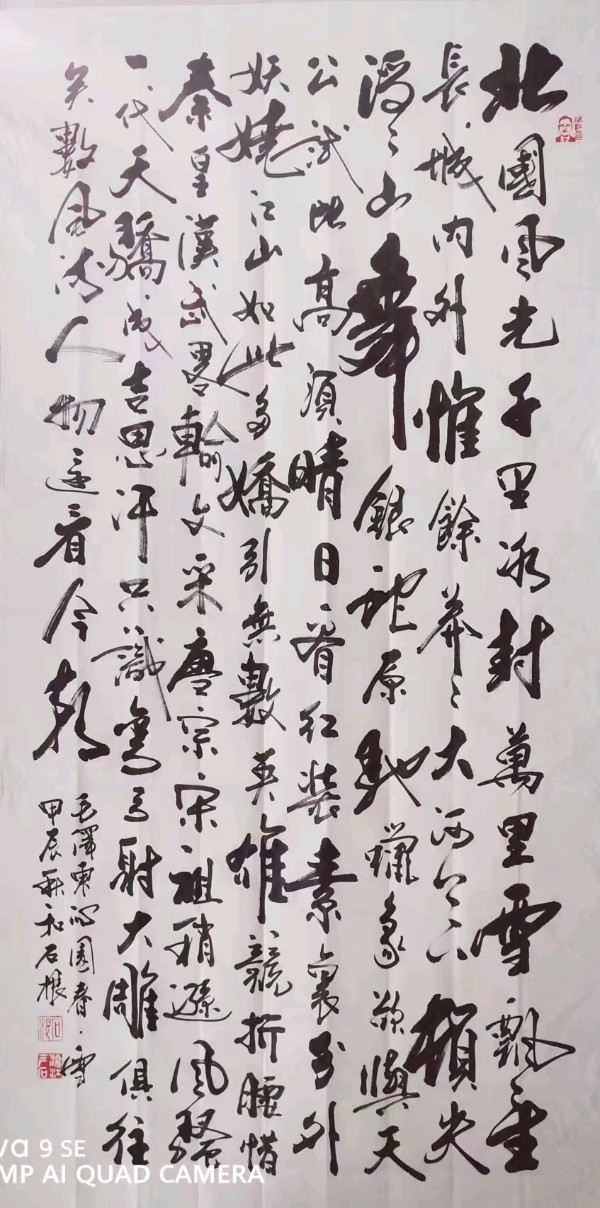 北國風光千里冰封萬里雪飄望
長城内外惟餘莽〻大河上下頓失
滔〻山舞銀蛇原馳蠟象欲與天
公試比高須晴日看紅裝素裹分外
妖嬈江山如此多嬌引無數英雄競折腰惜
秦皇漢武畧輸文采唐宗宋祖稍遜風騷
一代天驕成吉思汗只識彎弓射大雕俱往
矣數風流人物還看今朝
毛澤東沁園春·雪
甲辰秋和石根
va 9 SE
MP AI QUAD CAMERA